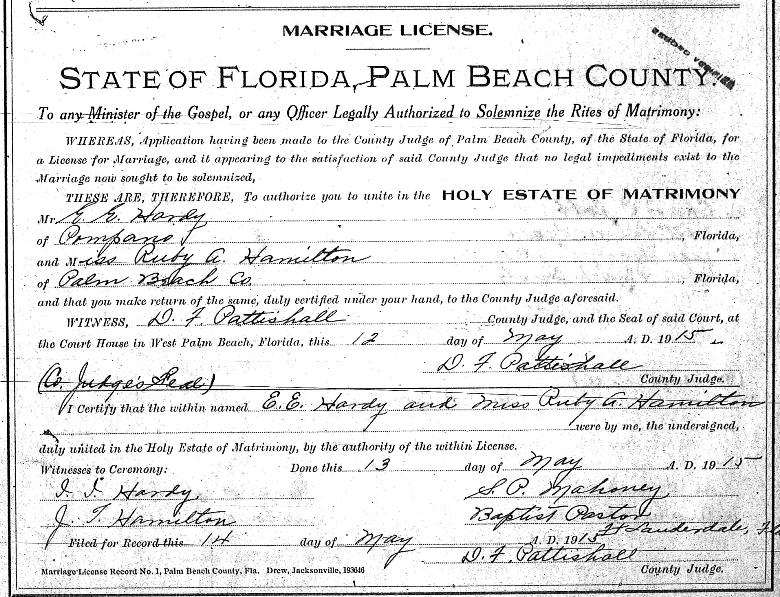 MARRIAGE LICENSE.
STATE OF FLORIDA, PALM BEACH COUNTY.
To any Minister of the Gospel, or any Officer Legally Authorized to Solemnize the Rites of Matrimony:
WHEREAS, Application having been made to the County Judge of Palm Beach County, of the State of Florida, for
a License for Marriage, and it appearing to the satisfaction of said County Judge that no legal impediments exist to the
Marriage now sought to be solemnized,
THESE ARE, THEREFORE, To authorize you to unite in the HOLY ESTATE OF MATRIMONY
Mr E. E. Hardy
of Pompano, Florida,
and Miss Ruby A. Hamilton
of Palm Beach Co., Florida,
and that you make return of the same, duly certified under your hand, to the County Judge aforesaid.
WITNESS, D. F. Pattishall County Judge, and the Seal of said Court, at
the Court House in West Palm Beach, Florida, this 12 day of May A. D. 1915
D. F. Pattishall
(Co. Judge's Seal) County Judge.
I Certify that the within named E.E. Hardy and Miss Ruby A. Hamilton
were by me, the undersigned,
duly united in the Holy Estate of Matrimony, by the authority of the within License.
Witnesses to Ceremony: Done this 13 day of May A. D. 1915
Hardy S. P. Mahoney
J. T. Hamilton Baptist Pastor
Ft Lauderdale, Fla
Filed for Record this 14 day of May A. D. 1915
D. F. Pattishall
Marriage License Record No. 1, Palm Beach County, Fla. Drew, Jacksonville, 193646 County Judge.